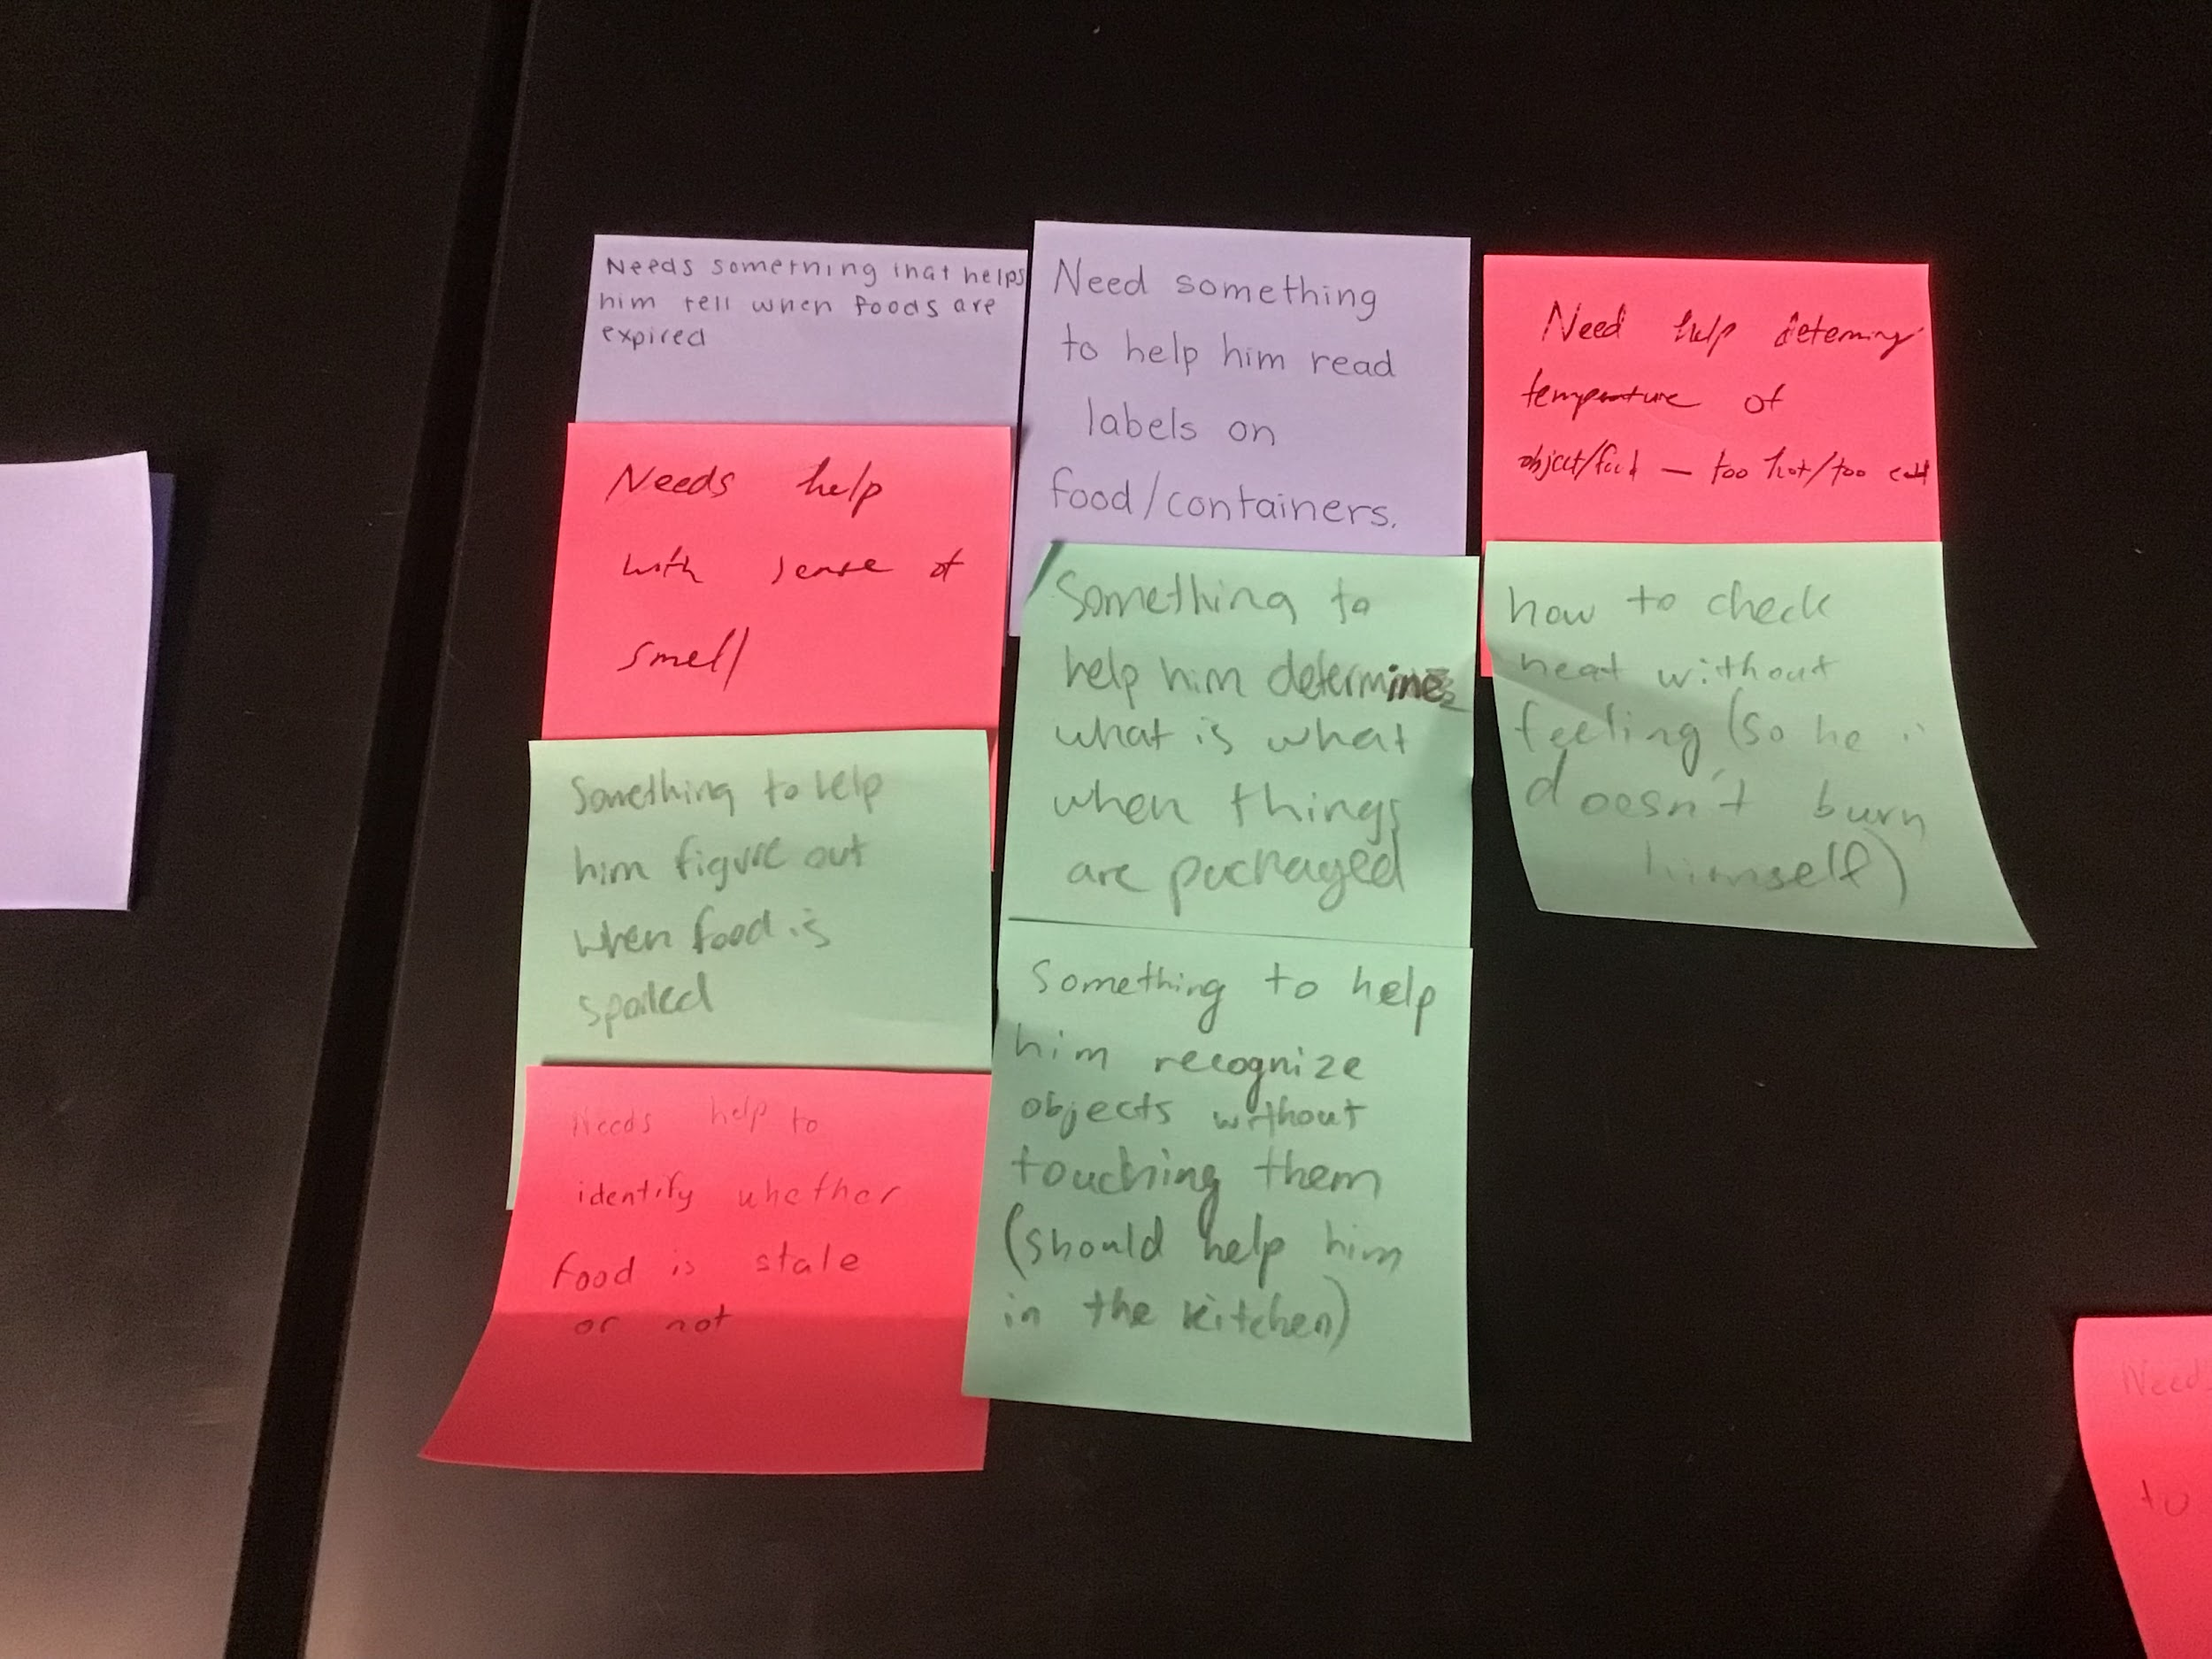 Needs something that helps
him tell when foods are
expired
Needs help
with sense of
smell
Something to help
him figure out
when food is
spoiled
Needs help to
identify whether
food is stale
or not
Need something
to help him read
labels on
food/containers.
Something to
help him determine
what is what
when things
are packaged
Something to help
him recognize
objects without
touching them
(should help him
in the kitchen)
Need help
temperature of
object/food — too hot/too cold
how to check
heat without
feeling (so he
doesn't burn
himself)
Need
to